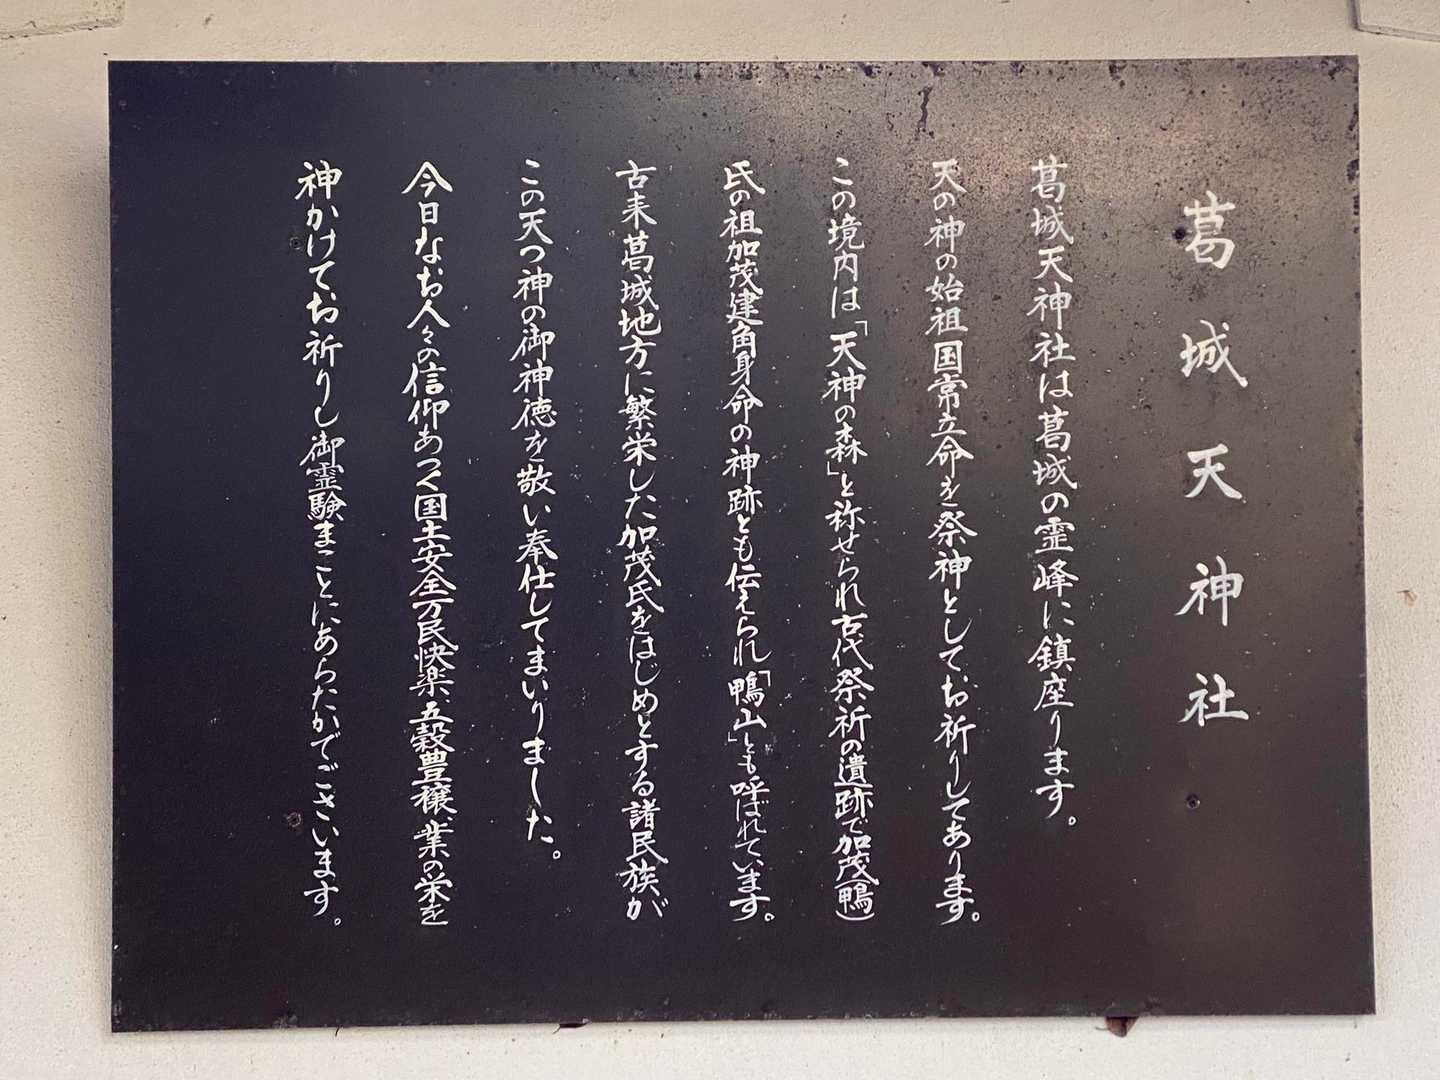 葛城天神社
葛城天神社は葛城の霊峰に鎮座ります。
天の神の始祖国常立命を祭神としてお祈りしてあります。
この境内は「天神の森」と称せられ古代祭祈の遺跡で加茂(鴨)
氏の祖加茂建角身命の神跡とも伝えられ「鴨山」とも呼ばれています。
古来葛城地方に繁栄した加茂氏をはじめとする諸民族が
この天つ神の御神徳を敬い奉仕してまいりました。
今日なお人々の信仰あつく国土安全万民快楽、五穀豊穣、業の栄を
神かけてお祈りし御霊験まことにあらたかでございます。